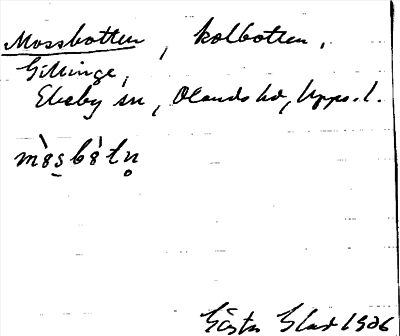 Mossbotten, kolbotten,
Gillinge,
Ekeby sn, Olands hd, Upps. l.
Gösta Glad 1926